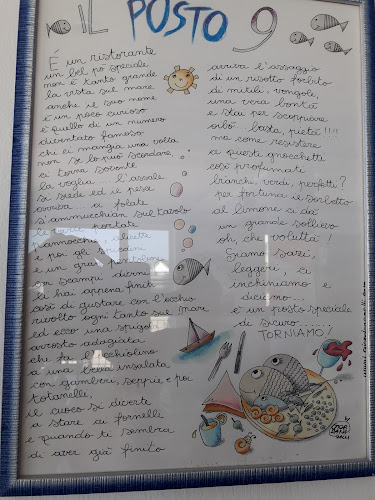 IL POSTO 9
É un ristorante
un bel pò speciale
non è tanto grande
la vista sul mare
anche il suo nome
è un poco curioso
è quello di un numero
diventato famoso
chi ci mangia una volta
non se lo può scordare,
ci torna sovente
la voglia l'assale
si siede ed il pesce
arriva a folate
s'ammucchian sul tavolo
le varie portate
pannocchie, alicette
e poi gli spiedini
e un gran
con scampi divini
li hai appena finiti
così di gustare con l'occhio
rivolto ogni tanto sul mare
ed ecco una spigola
arrosto adagiata
che fa l'occhiolino
a una bella insalata
con gamberi, seppie e poi
totanelli,
il cuoco si diverte
a stare ai fornelli
e quando ti sembra
di aver già finito
arriva l'assaggio
di un risotto forbito
di mitili, vongole,
una vera bontà
e stai per scoppiare
ohibò basta, pietà !!!!
ma come resistere
a questi gnocchetti
così profumati
bianchi, verdi, perfetti?
per fortuna il sorbetto
al limone ci dà
un grande sollievo
oh, che voluttà!
Siamo sazi,
leggeri, ci
inchiniamo e
diciamo...
è un posto speciale
di sicuro.....
TORNIAMO!